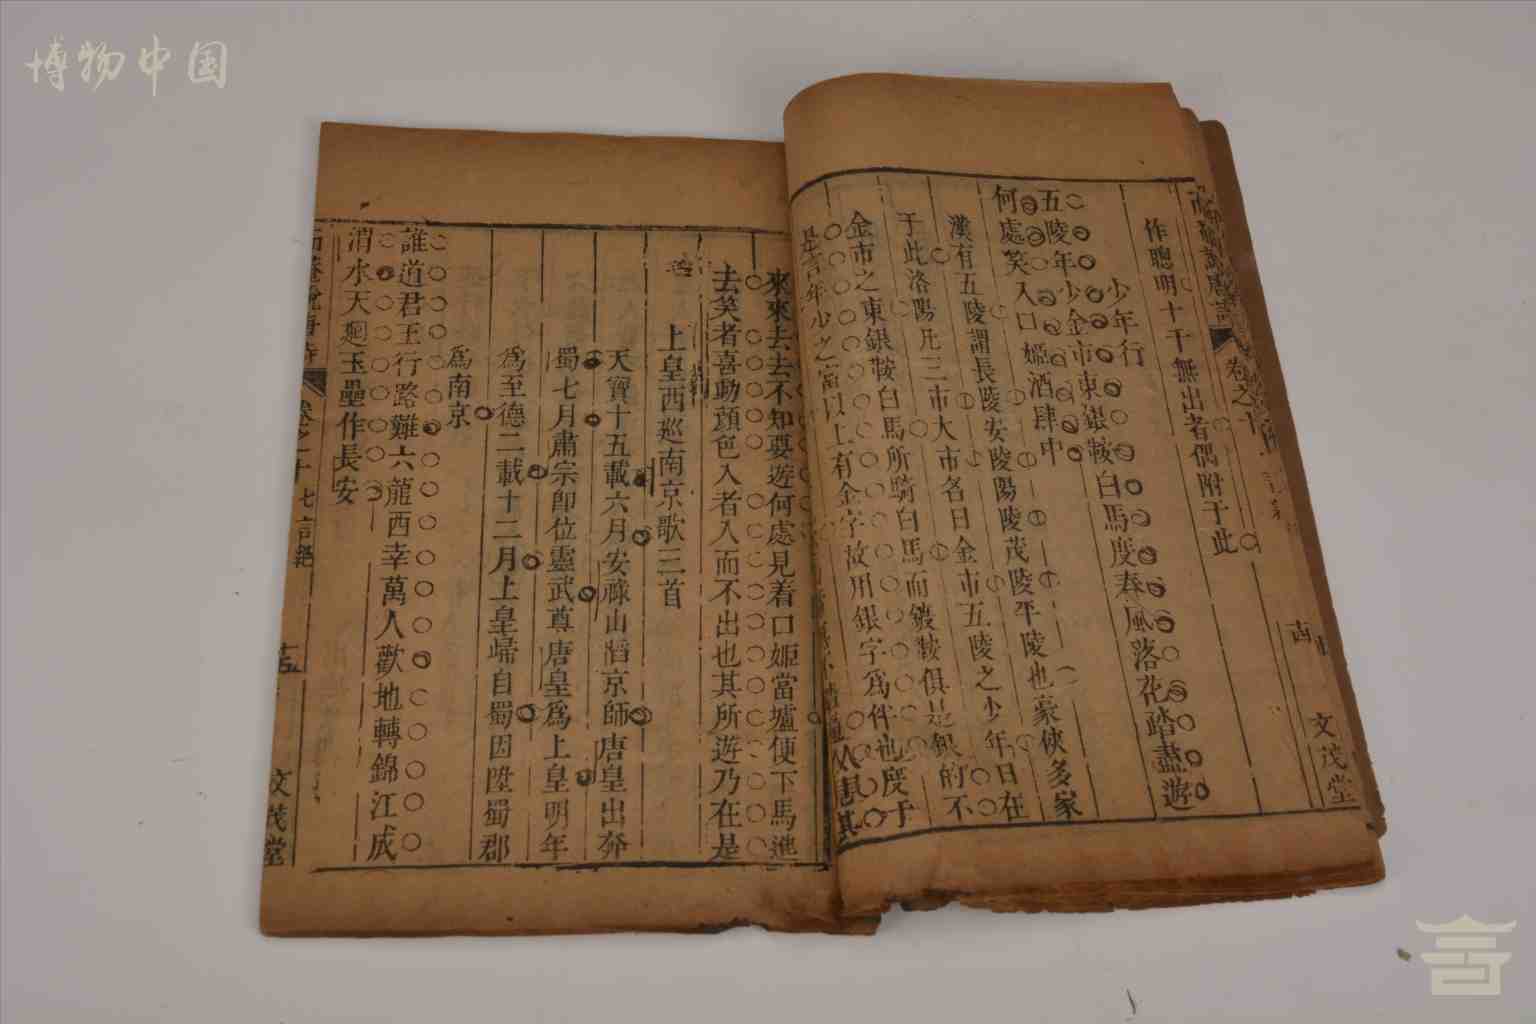 博物中国
而菴說唐詩
卷之十
文茂堂
作聰明十千無出者偶附于此
少年行
五陵年少金市東銀鞍白馬度春風落花踏盡遊
何處笑入口姬酒肆中
漢有五陵謂長陵安陵陽陵茂陵平陵也豪俠多家
于此洛陽凡三市大市名日金市五陵之少年日在
金市之東銀鞍白馬所騎白馬而鍍鞍俱是銀的不
是言年少之富以上有金字故用銀字為伴也度于
來來去去不知要遊何處見着口姬當壚便下馬進
去笑者喜動顏色入者入而不出也其所遊乃在是
上皇西巡南京歌三首
天寶十五載六月安祿山陷京師唐皇出奔
蜀七月肅宗即位靈武尊唐皇爲上皇明年
爲至德二載十二月上皇歸自蜀因陞蜀郡
爲南京
誰道君王行路難六龍西幸萬人歡地轉錦江成
渭水天廻玉壘作長安
而菴說唐詩
卷之十
七言絕
文茂堂